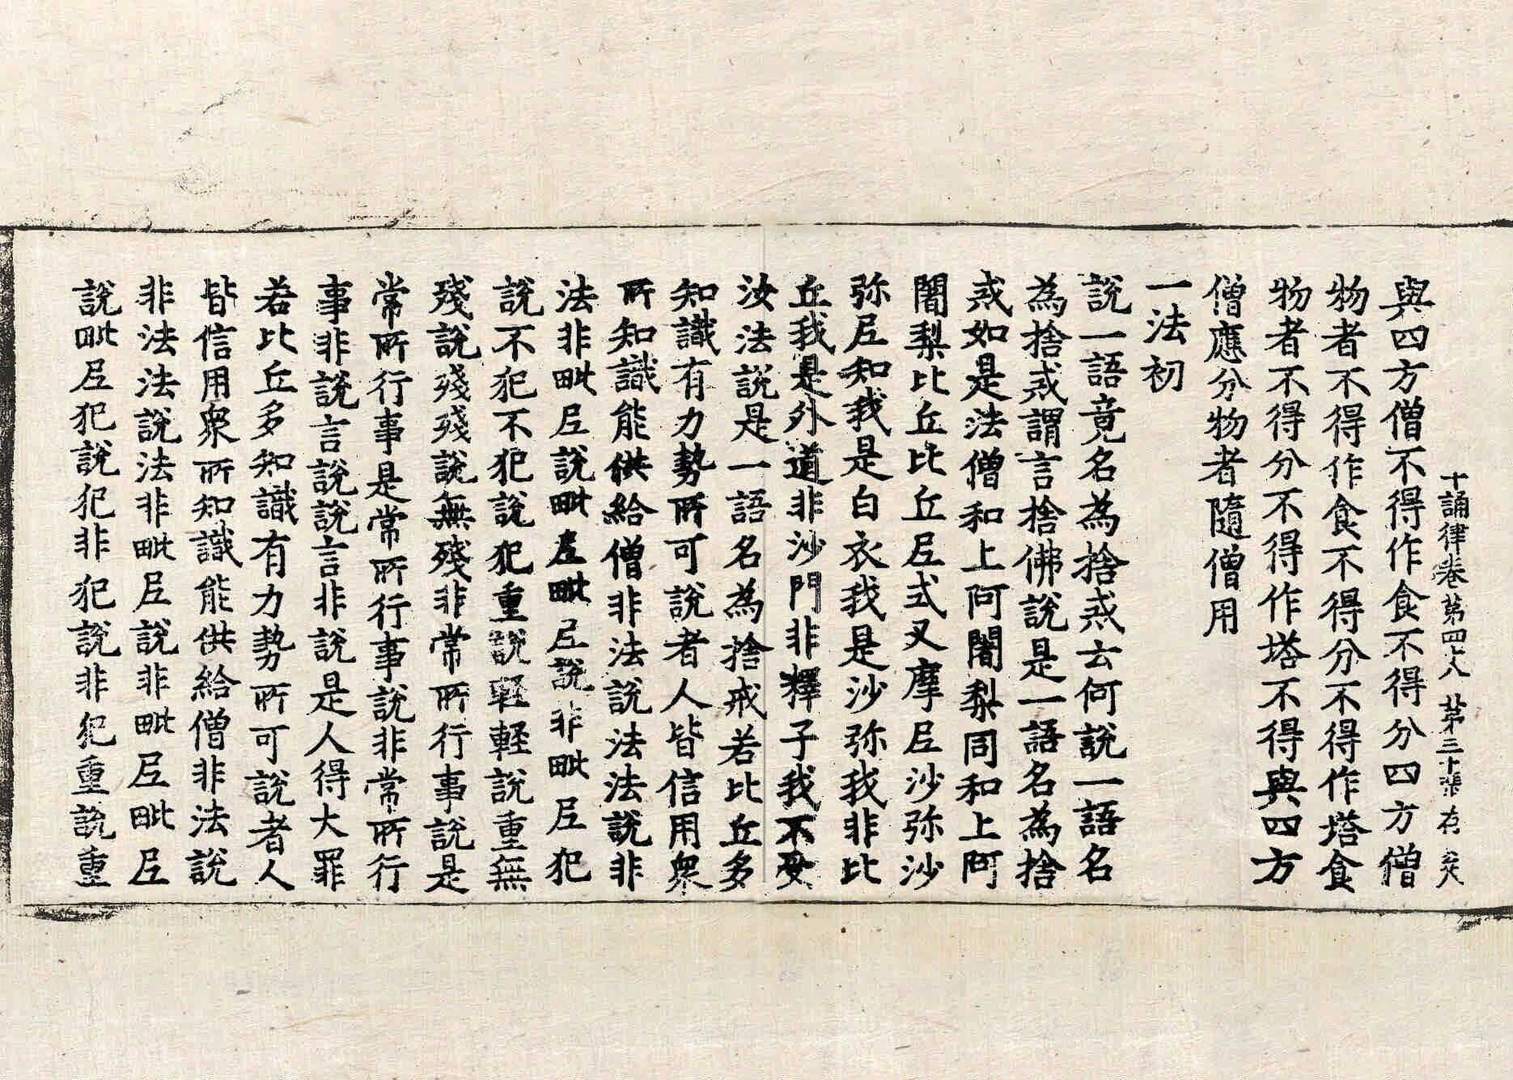 十誦律卷第四十八 第三十張 存
與四方僧不得作食不得分四方僧
物者不得作食不得分不得作塔食
物者不得分不得作塔不得與四方
僧應分物者隨僧用
一法初
說一語竟名為捨戒云何說一語名
為捨戒謂言捨佛說是一語名為捨
戒如是法僧和上阿闍梨同和上阿
闍梨比丘比丘尼式叉摩尼沙弥沙
弥尼知我是白衣我是沙弥我非比
丘我是外道非沙門非釋子我不受
汝法說是一語名為捨戒若比丘多
知識有力勢所可說者人皆信用衆
所知識能供給僧非法說法法說非
法非毗尼說毗尼毗尼說非毗尼犯
說不犯不犯說犯重說輕輕說重無
殘說殘殘說無殘非常所行事說是
常所行事是常所行事說非常所行
事非說言說說言非說是人得大罪
若比丘多知識有力勢所可說者人
皆信用衆所知識能供給僧非法說
非法法說法非毗尼說非毗尼毗尼
說毗尼犯說犯非犯說非犯重說重